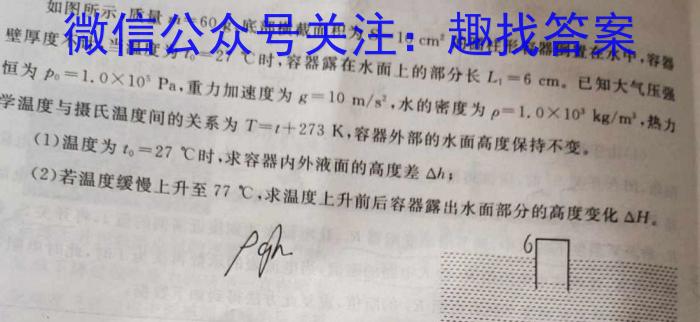 如图所示,质量m=60g、底部横截面积为S=10cm²
微信公众号关注：趣找答案
壁厚度不 当温度为t₀=27℃时,容器露在水面上的部分长L₁=6 cm。已知大气压强
恒为p₀=1.0×10⁵ Pa,重力加速度为g=10 m/s²,水的密度为ρ=1.0×10³ kg/m³,热力
学温度与摄氏温度间的关系为T=t+273 K,容器外部的水面高度保持不变。
(1)温度为t₀=27 ℃时,求容器内外液面的高度差Δh;
(2)若温度缓慢上升至77 ℃,求温度上升前后容器露出水面部分的高度变化ΔH。
ρgh
6